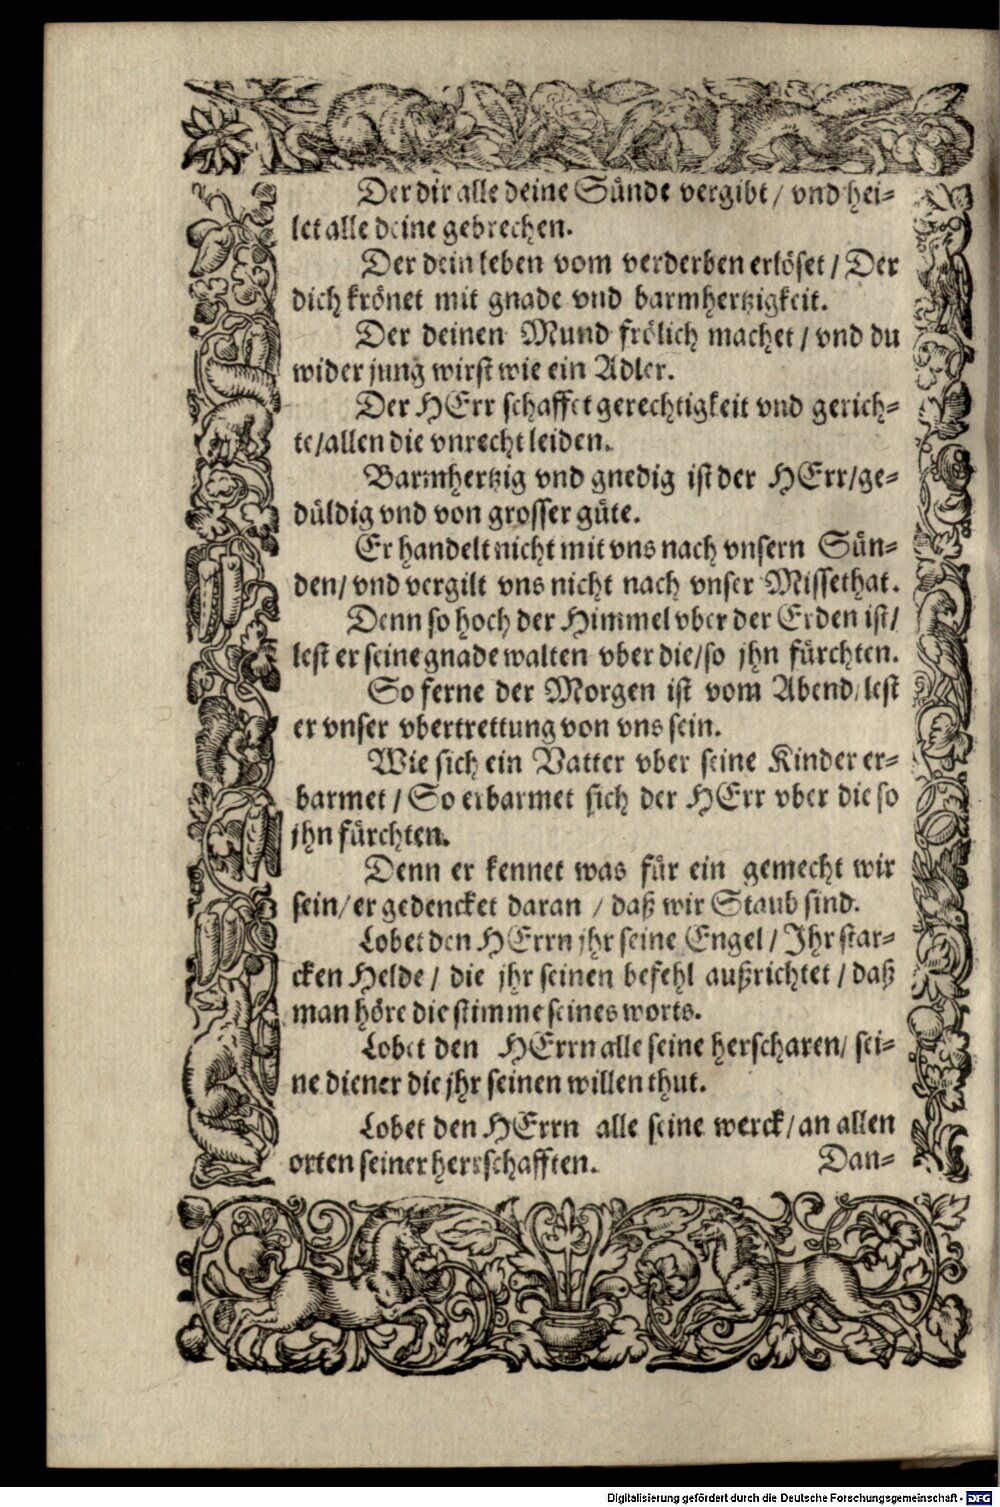 Der dir alle deine Sünde vergibt / vnd hei-
let alle deine gebrechen.
Der dein leben vom verderben erlöset / Der
dich krönet mit gnade vnd barmhertzigkeit.
Der deinen Mund frölich machet / vnd du
wider jung wirst wie ein Adler.
Der HErr schaffet gerechtigkeit vnd gerich-
te/allen die vnrecht leiden.
Barmhertzig vnd gnedig ist der HErr/ge-
düldig vnd von grosser güte.
Er handelt nicht mit vns nach vnsern Sün-
den/ vnd vergilt vns nicht nach vnser Missethat.
Denn so hoch der Himmel vber der Erden ist/
lest er seine gnade walten vber die/so jhn fürchten.
So ferne der Morgen ist vom Abend/ lest
er vnser vbertrettung von vns sein.
Wie sich ein Vatter vber seine Kinder er-
barmet / So erbarmet sich der HErr vber die so
jhn fürchten.
Denn er kennet was für ein gemecht wir
sein/ er gedencket daran / daß wir Staub sind.
Lobet den HErrn jhr seine Engel / Jhr star-
cken Helde / die jhr seinen befehl außrichtet / daß
man höre die stimme seines worts.
Lobet den HErrn alle seine herscharen/ sei-
ne diener die jhr seinen willen thut.
Lobet den HErrn alle seine werck/ an allen
orten seiner herrschafften.
Dan-
Digitalisierung gefördert durch die Deutsche Forschungsgemeinschaft - DFG